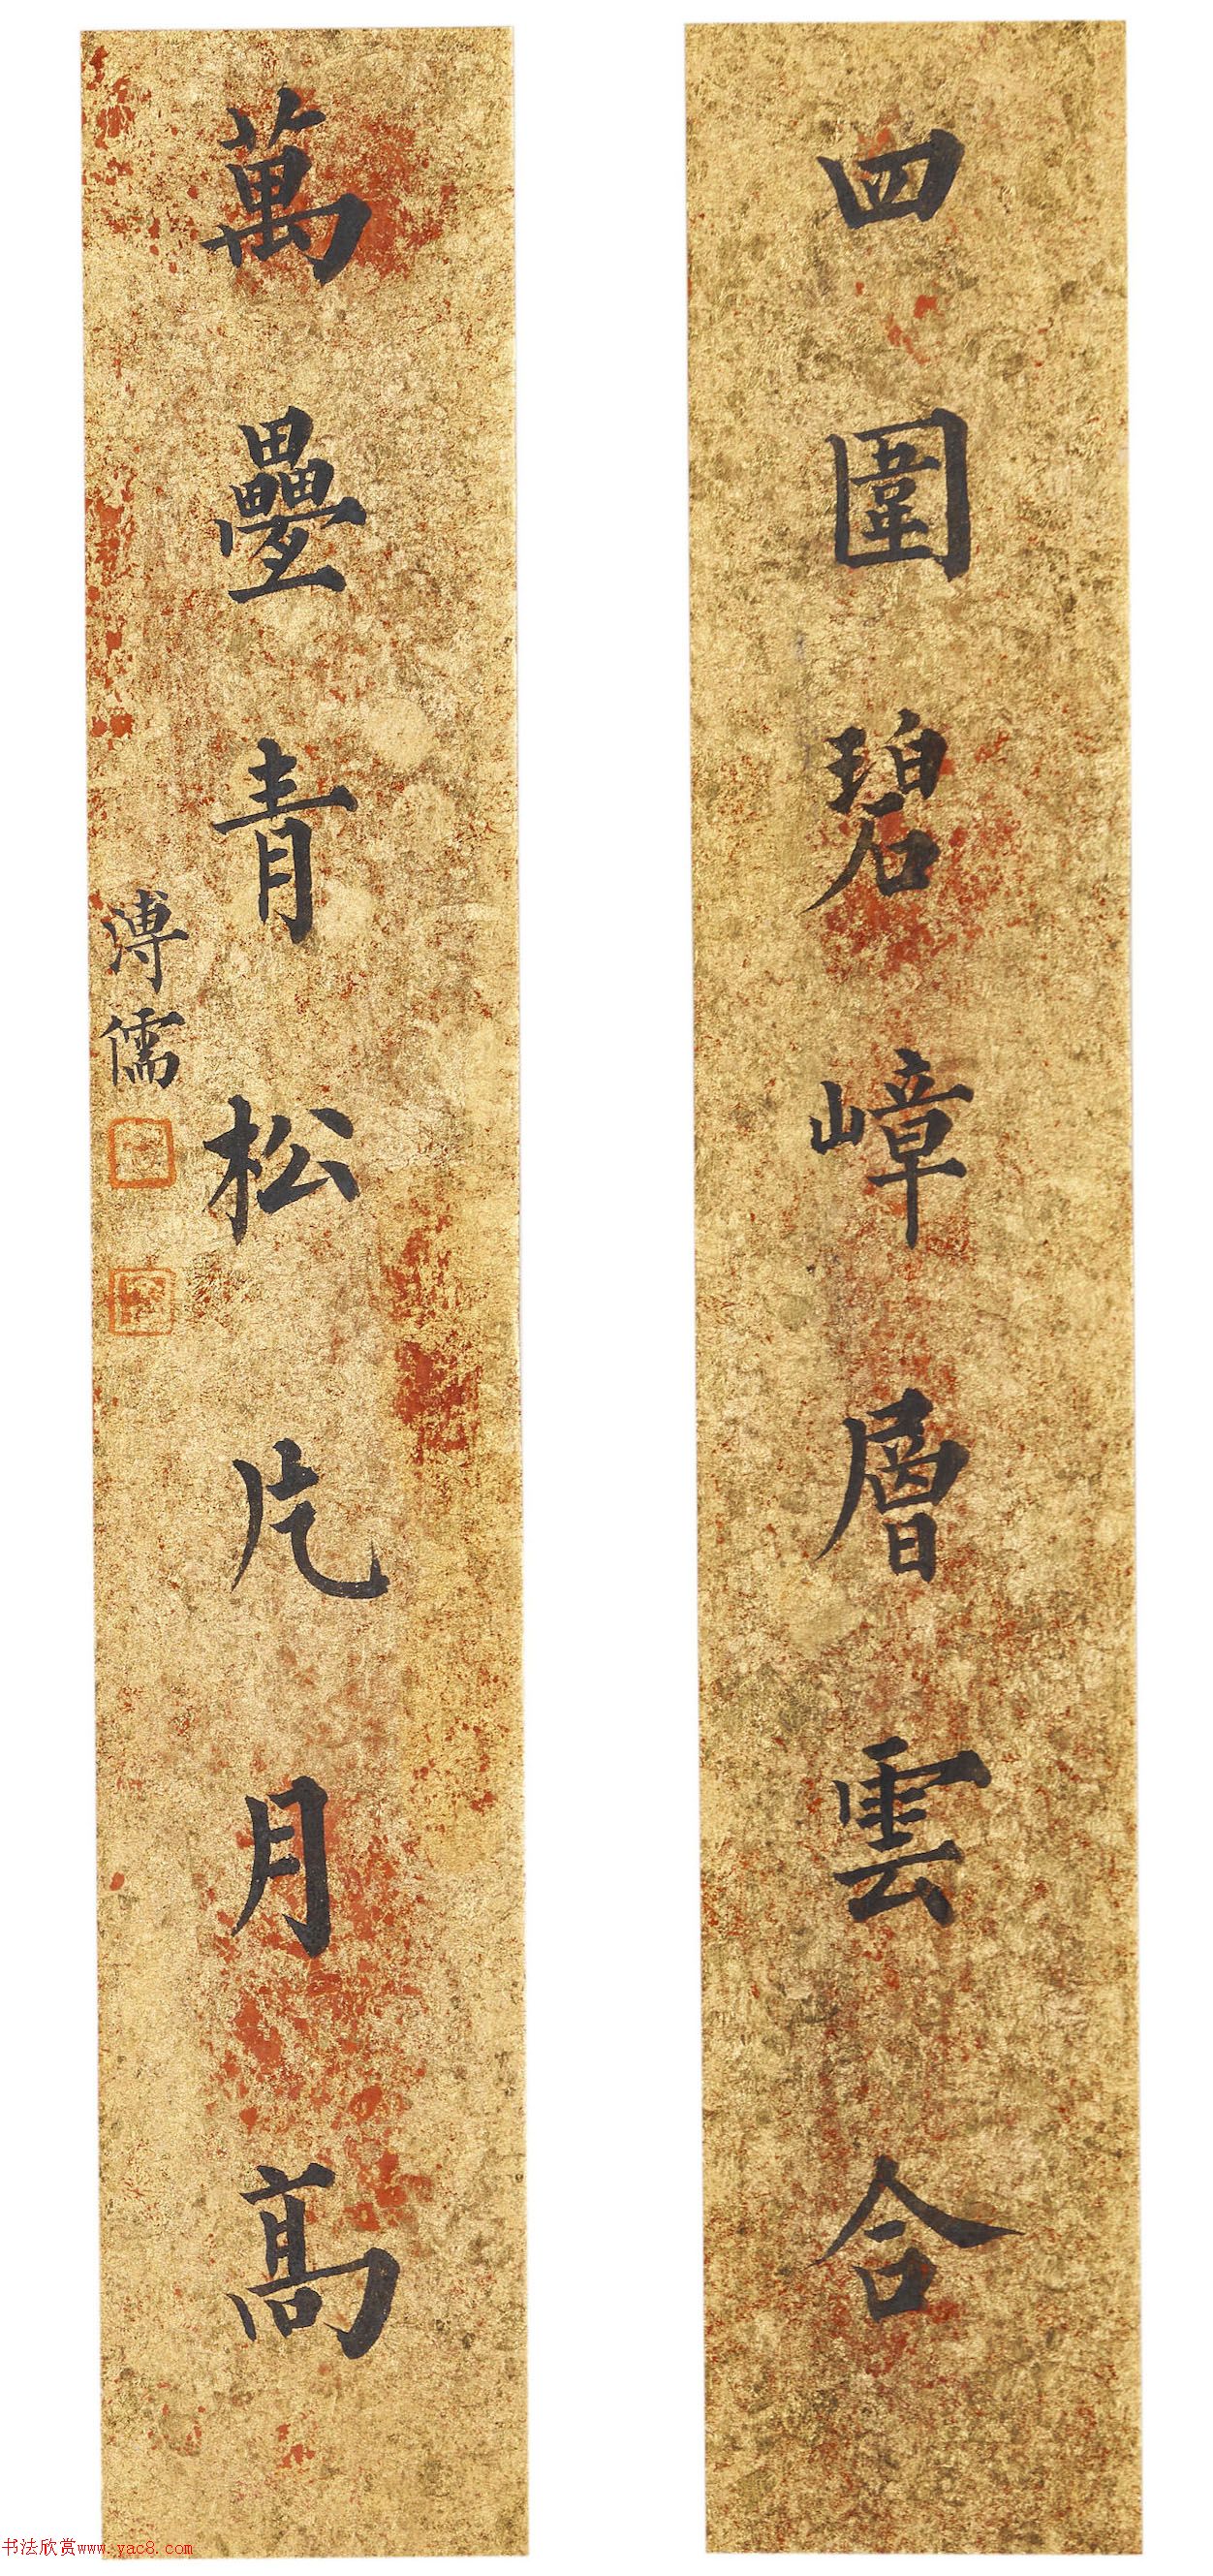 四圍碧嶂層雲合
萬疊青松片月高
溥儒
书法欣赏www.yac8.com